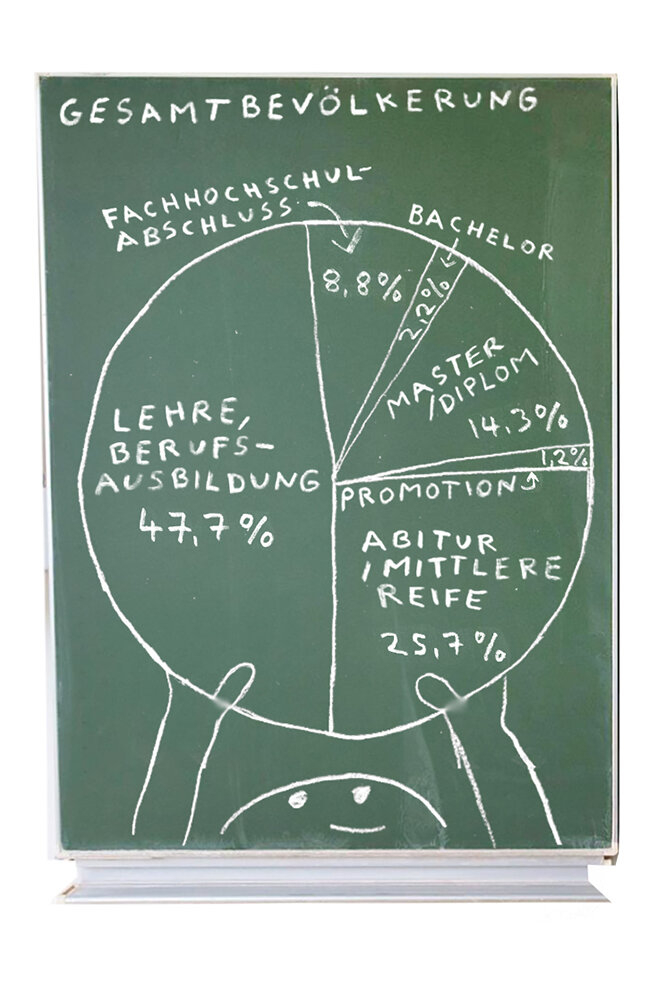 GESAMTBEVÖLKERUNG
FACHHOCHSCHUL-
ABSCHLUSS
BACHELOR
8,8%
2,2%
MASTER
/DIPLOM
14,3%
1,2%
PROMOTION
LEHRE,
BERUFS-
AUSBILDUNG
47,7%
ABITUR
/MITTLERE
REIFE
25,7%